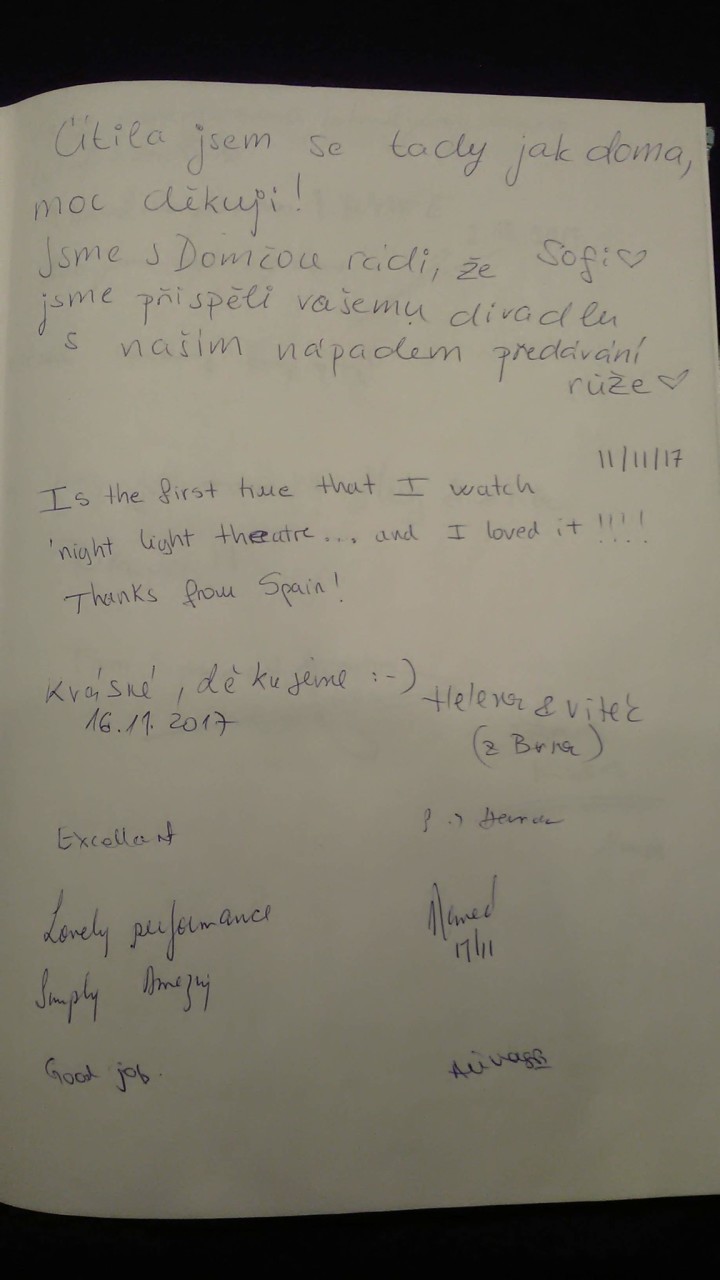 Cítila jsem se tady jak doma,
moc děkuji!
Jsme s Domčou rádi, že Sofi♡
jsme přispěli vašemu divadlu
s naším nápadem předávání
růže♡
11/11/17
Is the first time that I watch
'night light theatre... and I loved it !!!!
Thanks from Spain!
Krásné, děkujeme :-)
16.11.2017
Helena & Vítek
(z Brna)
Excellant
Lovely performance
17/11
Simply Amezing
Good job.